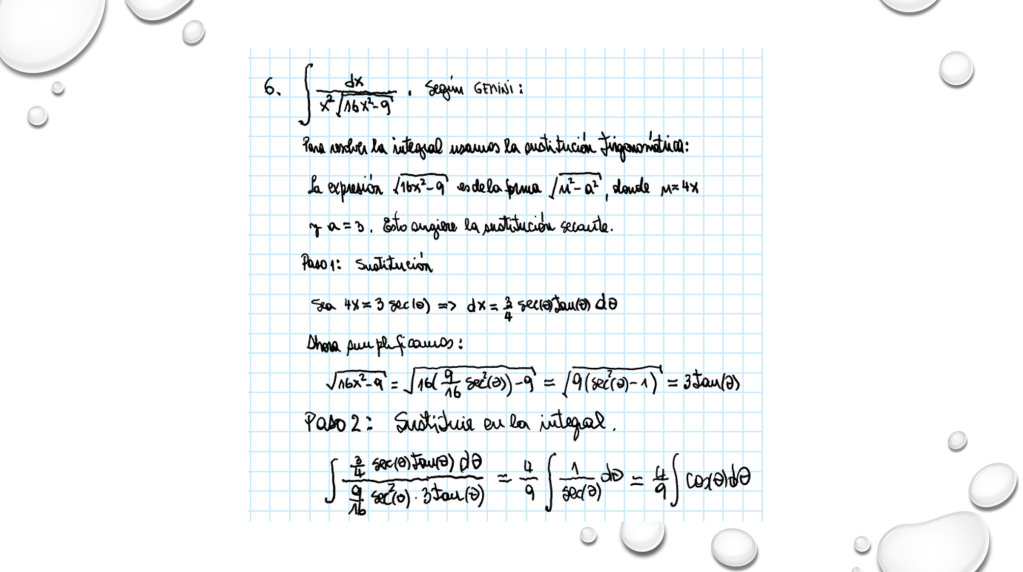 6. ∫ dx / (x²√(16x²-9)) . Según GEMINI:
Para resolver la integral usamos la sustitución trigonométrica:
La expresión √(16x²-9) es de la forma √(u²-a²), donde u=4x
y a=3. Esto sugiere la sustitución secante.
Paso 1: Sustitución
Sea 4x = 3 sec(θ) => dx = 3/4 sec(θ)tan(θ) dθ
Ahora simplificamos:
√(16x²-9) = √(16(9/16 sec²(θ))-9) = √(9(sec²(θ)-1)) = 3tan(θ)
Paso 2: Sustituir en la integral.
∫ (3/4 sec(θ)tan(θ) dθ) / (9/16 sec²(θ)·3tan(θ)) = 4/9 ∫ 1/sec(θ) dθ = 4/9 ∫ cos(θ)dθ